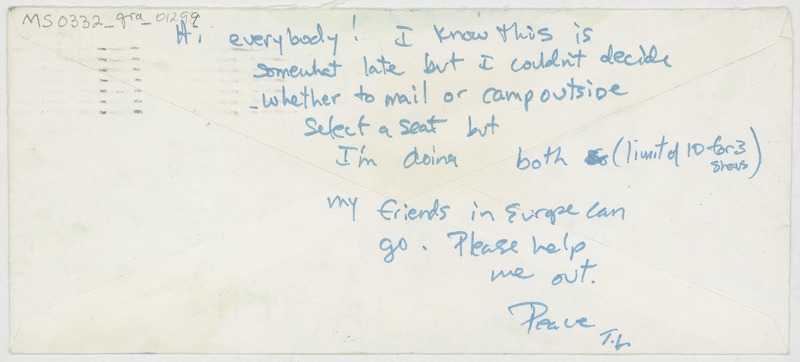 MS0332_gra_01299
Hi everybody! I know this is
somewhat late but I couldn't decide
whether to mail or camp outside
Select a seat but
I'm doing both (limit of 10 for 3
shows)
my friends in Europe can
go. Please help
me out.
Peace T.L.